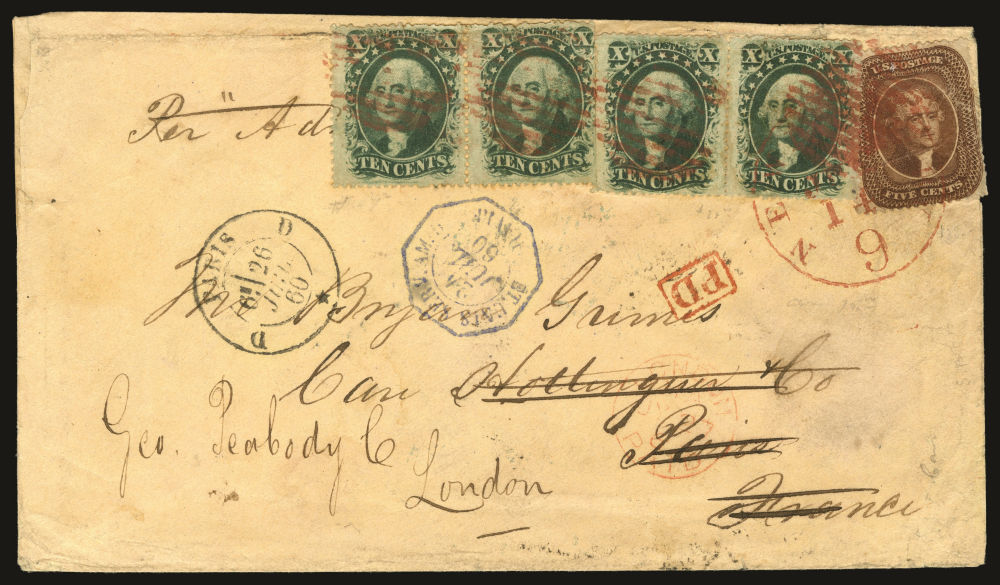 X U.S. POSTAGE X
TEN CENTS
X U.S. POSTAGE X
TEN CENTS
X U.S. POSTAGE X
TEN CENTS
X U.S. POSTAGE X
TEN CENTS
U.S. POSTAGE
FIVE CENTS
Per Ad
N E
14
9
PARIS D
26
JUIL
60
D
60
PD
Bryan Grimes
Care Hottinguer & Co
Paris
France
Geo. Peabody & Co
London